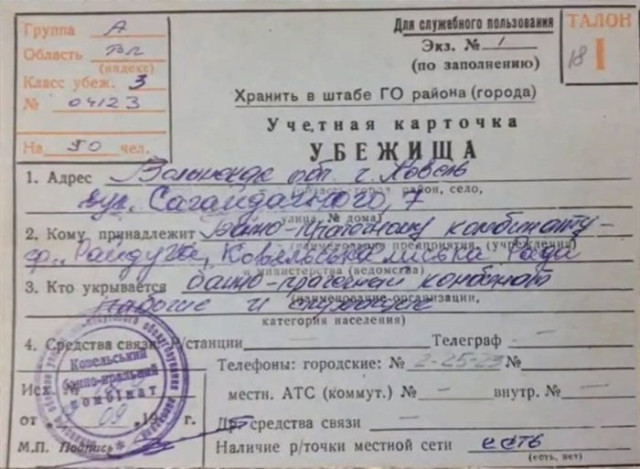 Группа А
Область
(индекс)
Класс убеж. 3
№ 04123
На 50 чел.
Для служебного пользования
Экз. № 1
(по заполнению)
ТАЛОН
18 I
Хранить в штабе ГО района (города)
Учетная карточка
УБЕЖИЩА
1. Адрес Волынская обл. г. Ковель
район, село,
вул. Сагайдачного, 7
улица, № дома)
2. Кому принадлежит Банно-прачечному комбинату-
(наименование предприятия, (учреждения)
ф. „Райдуга", Ковельська міська Рада
и министерства (ведомства)
3. Кто укрывается банно-прачечный комбинат
(наименование организации,
рабочие и служащие
категория населения)
4. Средства связи: Р/станции — Телеграф —
Телефоны: городские: № 2-25-23 №
местн. АТС (коммут.) № — внутр. № —
Др. средства связи —
Наличие р/точки местной сети есть
(есть, нет)
Исх. №
от 09 19 г.
М.П. Подпись
Ковельський
банно-пральний
комбінат